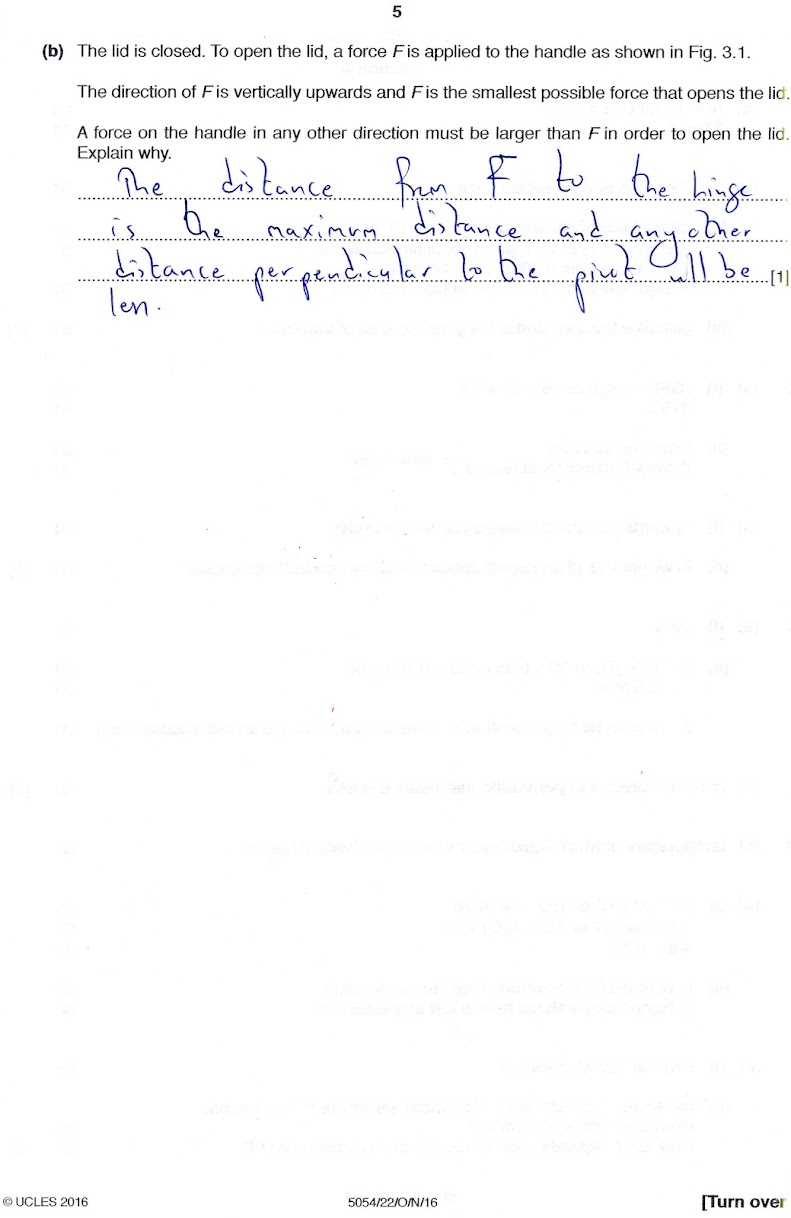 5
(b) The lid is closed. To open the lid, a force F is applied to the handle as shown in Fig. 3.1.
The direction of F is vertically upwards and F is the smallest possible force that opens the lid.
A force on the handle in any other direction must be larger than F in order to open the lid.
Explain why.
The distance from F to the hinge
is the maximum distance and any other
distance perpendicular to the pivot will be
[1]
less.
© UCLES 2016
5054/22/O/N/16
[Turn over